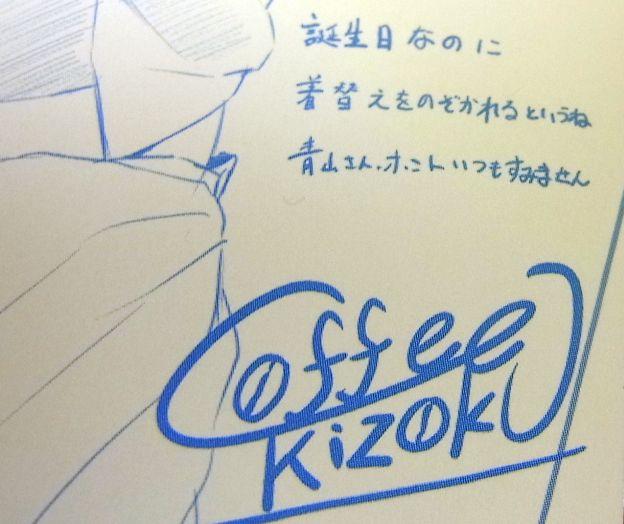 誕生日なのに
着替えをのぞかれるというね
青山さん、ホントいつもすみません
Coffee
Kizoku